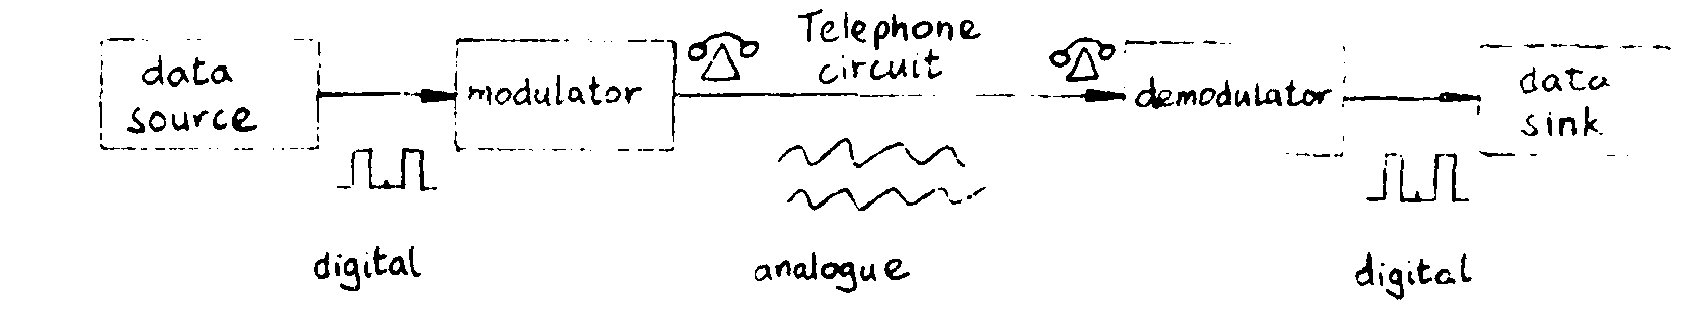 data
source
modulator
Telephone
circuit
demodulator
data
sink
digital
analogue
digital